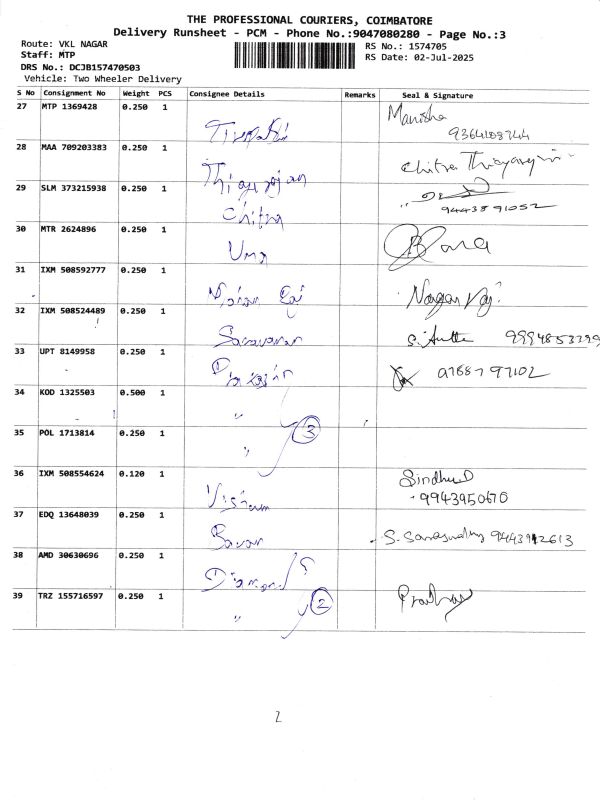 THE PROFESSIONAL COURIERS, COIMBATORE
Delivery Runsheet - PCM - Phone No.:9047080280 - Page No.:3
Route: VKL NAGAR
RS No.: 1574705
Staff: MTP
RS Date: 02-Jul-2025
DRS No.: DCJB157470503
Vehicle: Two Wheeler Delivery
S No Consignment No Weight PCS Consignee Details Remarks Seal & Signature
27 MTP 1369428 0.250 1 Manisha
9364108744
28 MAA 709203383 0.250 1 Chitra
Thiagarajan
29 SLM 373215938 0.250 1
Chitra 9443891052
30 MTR 2624896 0.250 1
Uma
31 IXM 508592777 0.250 1 Nagaraj
32 IXM 508524489 0.250 1
Saravanan 9994853299
33 UPT 8149958 0.250 1 9788797102
34 KOD 1325503 0.500 1
"
3
35 POL 1713814 0.250 1
"
36 IXM 508554624 0.120 1 Sindhu
9943950670
37 EDQ 13648039 0.250 1
Bavan S. 9443912613
38 AMD 30630696 0.250 1
Diamond
39 TRZ 155716597 0.250 1
2
"
2